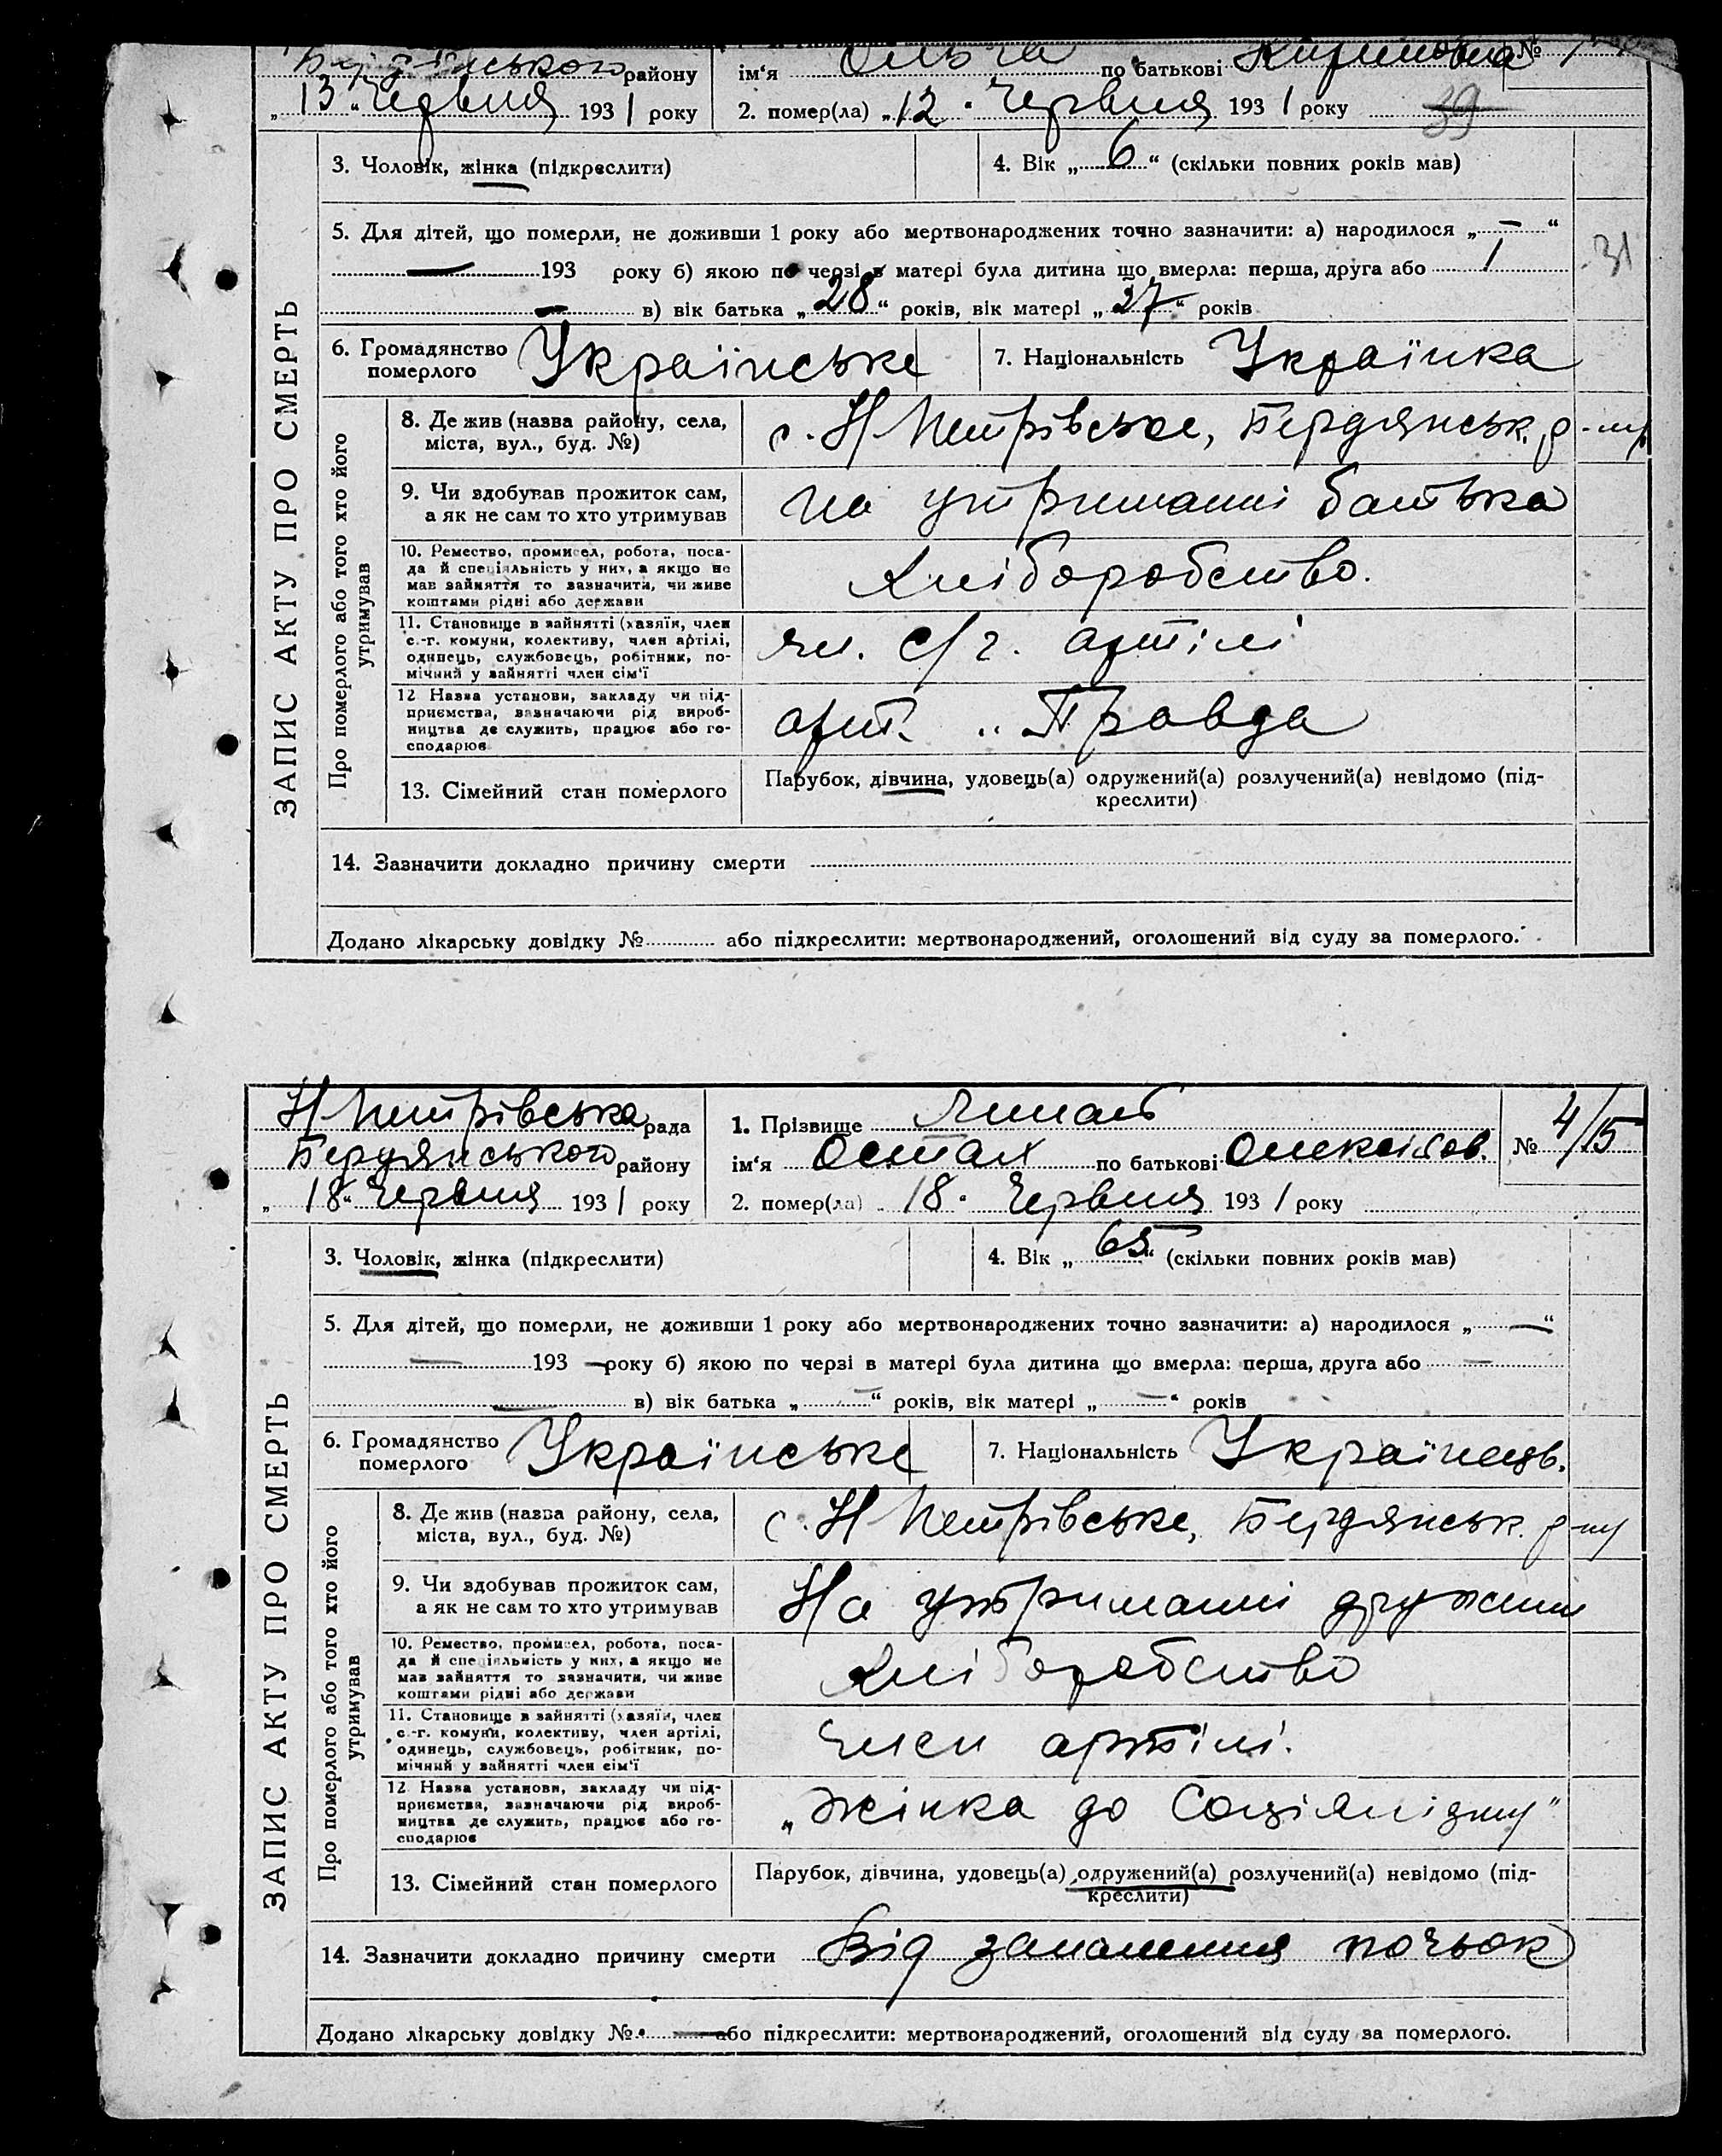 району ім'я Ольга по батькові №
„13“ Червня 1931 року 2. помер(ла) „12“ Червня 1931 року 39
ЗАПИС АКТУ ПРО СМЕРТЬ
3. Чоловік, жінка (підкреслити) 4. Вік „6“ (скільки повних років мав)
5. Для дітей, що померли, не доживши 1 року або мертвонароджених точно зазначити: а) народилося „—“
— 193 року б) якою по черзі в матері була дитина що вмерла: перша, друга або 31
— в) вік батька „28“ років, вік матері „27“ років
6. Громадянство померлого Українське 7. Національність Українка
Про померлого або того хто його утримував
8. Де жив (назва району, села, міста, вул., буд. №) с. Н Петрівське, Бердянськ. р-ну
9. Чи здобував прожиток сам, а як не сам то хто утримував на утриманні батька
10. Ремество, промисел, робота, посада й спеціальність у них, а якщо не мав зайняття то зазначити, чи живе коштами рідні або держави Хліборобство.
11. Становище в зайнятті (хазяїн, член с.-г. комуни, колективу, член артілі, одинець, службовець, робітник, помічний у зайнятті член сім'ї чл. с/г. артілі
12 Назва установи, закладу чи підприємства, зазначаючи рід виробництва де служить, працює або господарює арт. „Правда
13. Сімейний стан померлого Парубок, дівчина, удовець(а) одружений(а) розлучений(а) невідомо (підкреслити)
14. Зазначити докладно причину смерти
Додано лікарську довідку № або підкреслити: мертвонароджений, оголошений від суду за померлого.
Н Петрівська рада 1. Прізвище № 4/15
Бердянського району ім'я Остап по батькові Олексійов.
„18“ Червня 1931 року 2. помер(ла) „18“ Червня 1931 року
ЗАПИС АКТУ ПРО СМЕРТЬ
3. Чоловік, жінка (підкреслити) 4. Вік „65“ (скільки повних років мав)
5. Для дітей, що померли, не доживши 1 року або мертвонароджених точно зазначити: а) народилося „—“
— 193 — року б) якою по черзі в матері була дитина що вмерла: перша, друга або —
— в) вік батька „—“ років, вік матері „—“ років
6. Громадянство померлого Українське 7. Національність Українець.
Про померлого або того хто його утримував
8. Де жив (назва району, села, міста, вул., буд. №) с. Н Петрівське, Бердянськ. р-ну
9. Чи здобував прожиток сам, а як не сам то хто утримував На утриманні дружини
10. Ремество, промисел, робота, посада й спеціальність у них, а якщо не мав зайняття то зазначити, чи живе коштами рідні або держави Хліборобство
11. Становище в зайнятті (хазяїн, член с.-г. комуни, колективу, член артілі, одинець, службовець, робітник, помічний у зайнятті член сім'ї член артілі.
12 Назва установи, закладу чи підприємства, зазначаючи рід виробництва де служить, працює або господарює „Жінка до Соціялізму“
13. Сімейний стан померлого Парубок, дівчина, удовець(а) одружений(а) розлучений(а) невідомо (підкреслити)
14. Зазначити докладно причину смерти Від запалення почьок
Додано лікарську довідку № — або підкреслити: мертвонароджений, оголошений від суду за померлого.